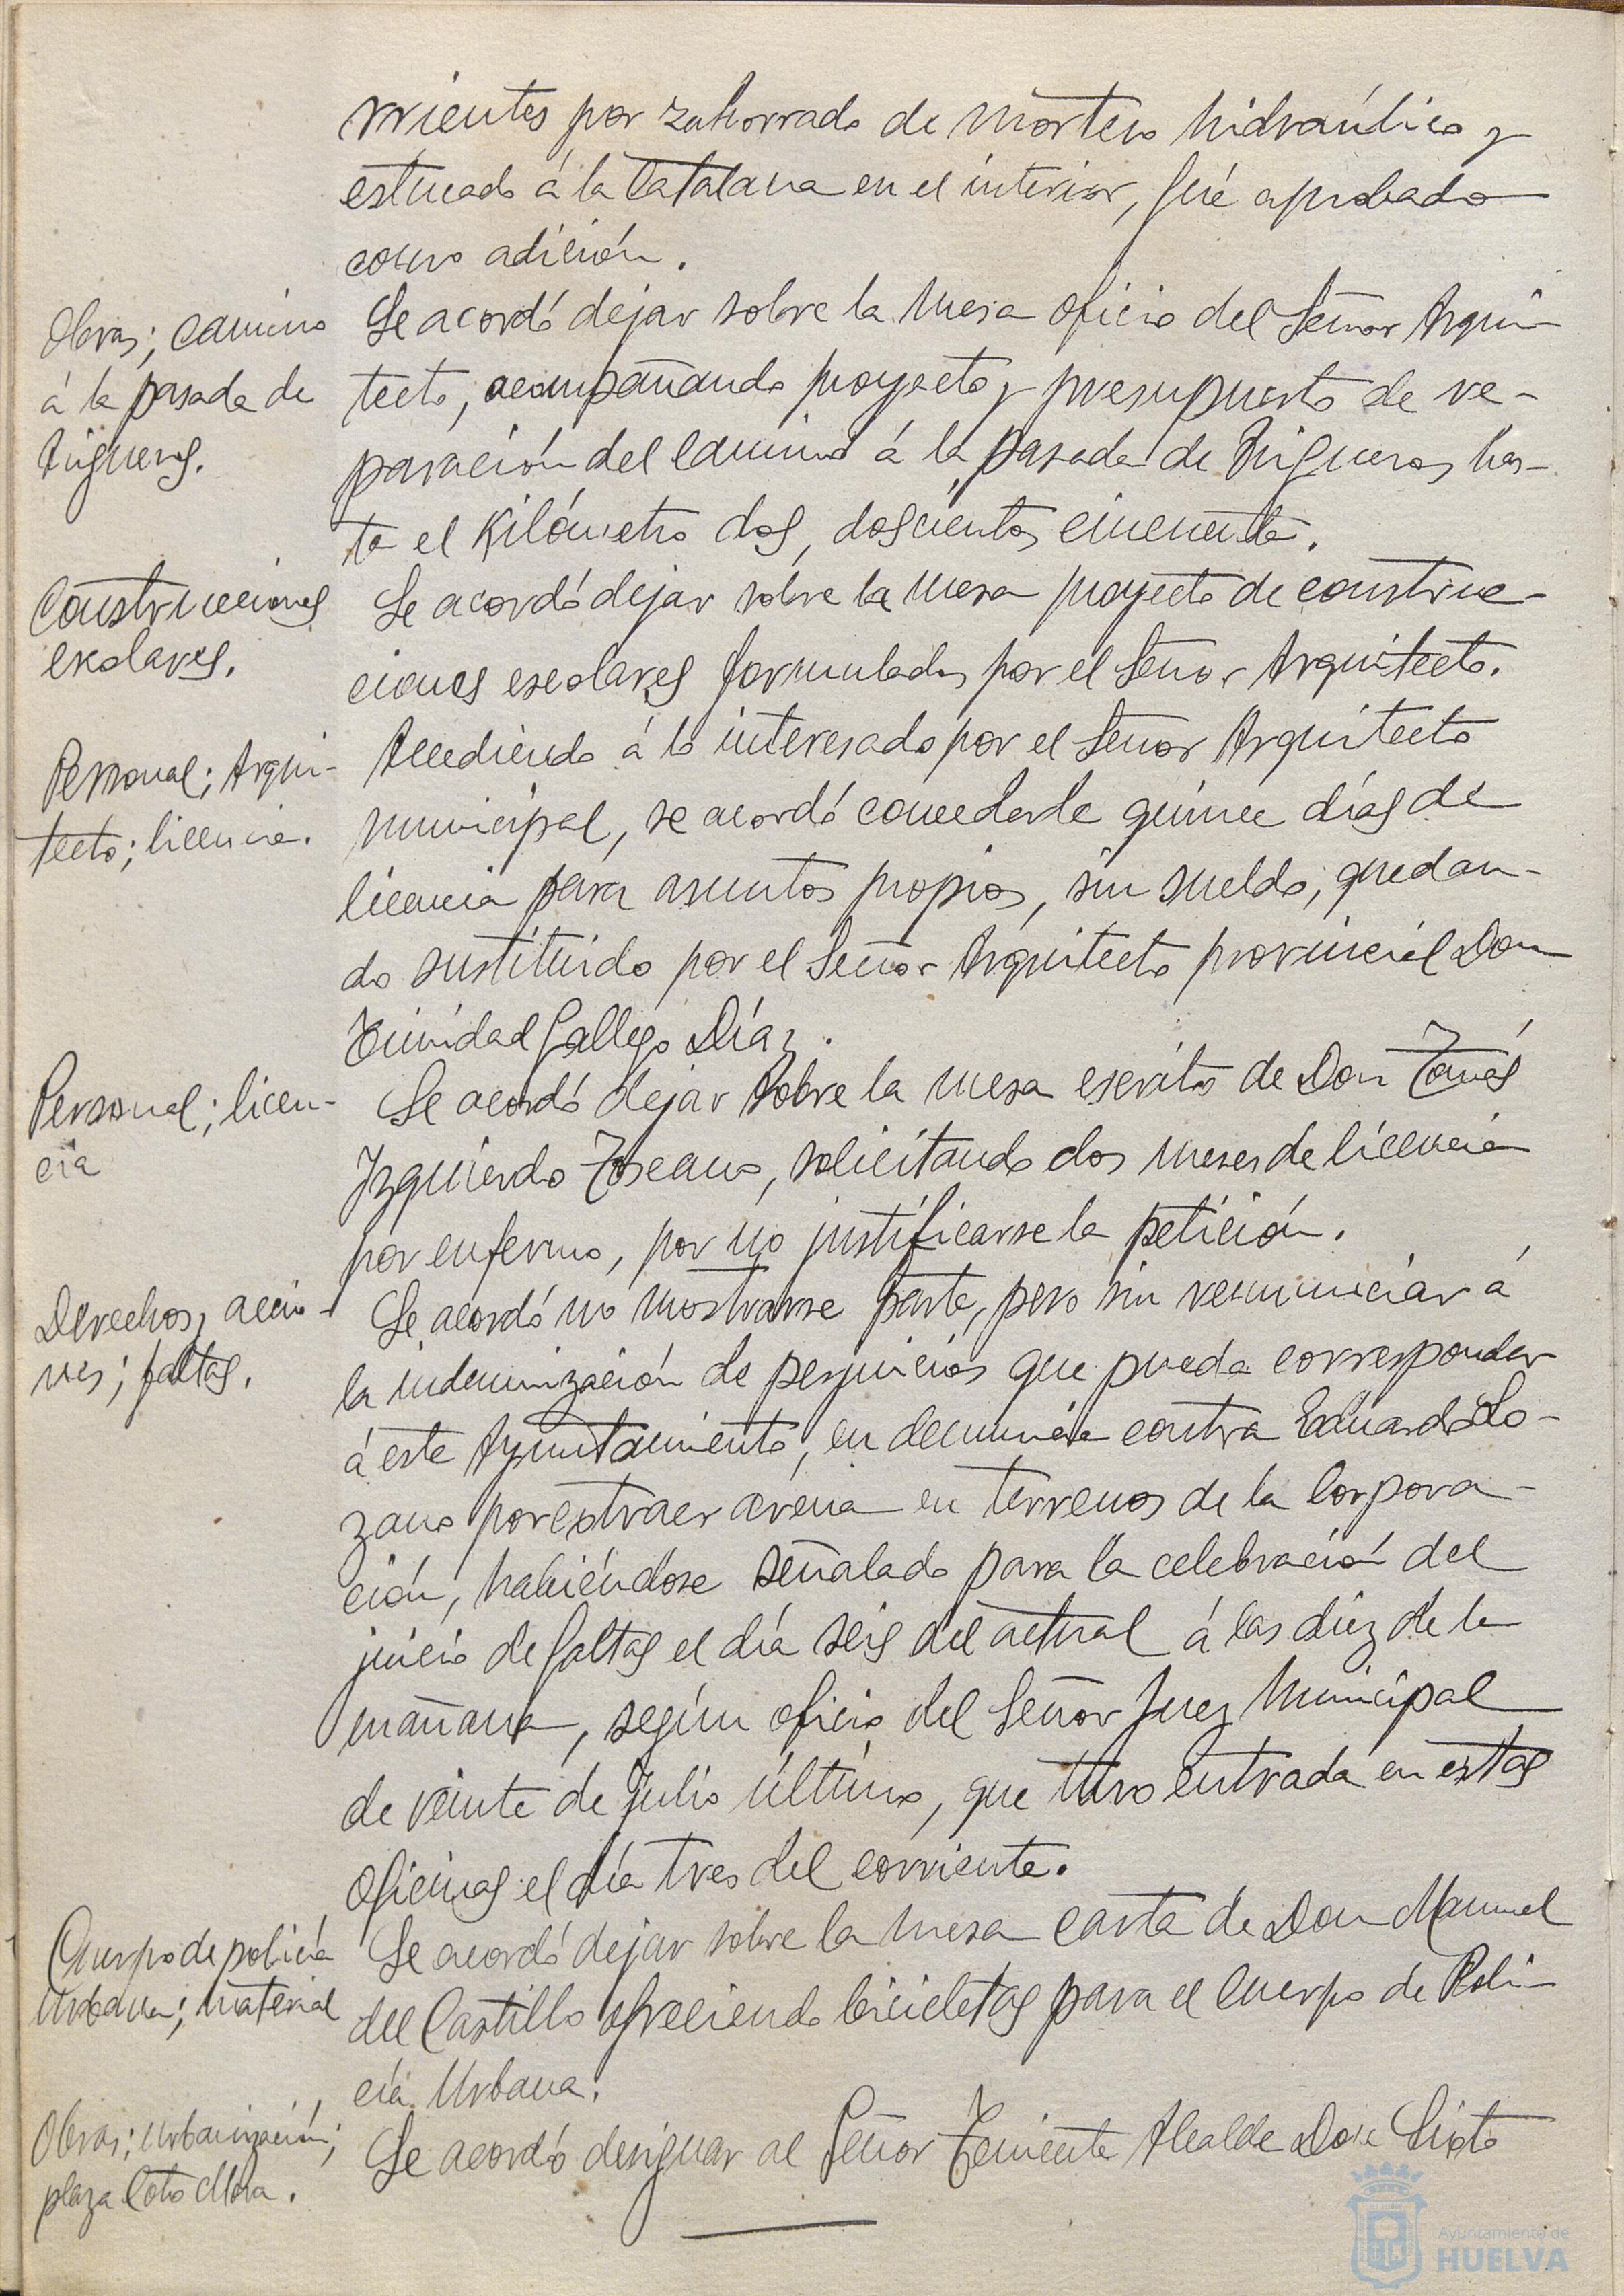 rrientes por zahorrado de mortero hidraúlico y
estucado á la Catalana en el interior, fué aprobado
como adición.
Obras; camino
á la pasada de
Trigueros.
Se acordó dejar sobre la mesa oficio del Señor Arqui-
tecto, acompañando proyecto y presupuesto de re-
paración del camino á la pasada de Trigueros has-
ta el Kilómetro dos, doscientos cincuenta.
Construcciones
escolares.
Se acordó dejar sobre la mesa proyecto de construc-
ciones escolares formulados por el Señor Arquitecto.
Personal; Arqui-
tecto; licencia.
Accediendo á lo interesado por el Señor Arquitecto
municipal, se acordó concederle quince días de
licencia para asuntos propios, sin sueldo, quedan-
do sustituido por el Señor Arquitecto provincial Don
Trinidad Gallego Díaz.
Personal; licen-
cia
Se acordó dejar sobre la mesa escrito de Don Tomás
Izquierdo Toscano, solicitando dos meses de licencia
por enfermo, por no justificarse la petición.
Derechos y accio-
nes; faltas.
Se acordó no mostrarse parte, pero sin renunciar á
la indemnización de perjuicios que pueda corresponder
á este Ayuntamiento, en denuncia contra Eduardo Lo-
zano por extraer arena en terrenos de la Corpora-
ción, habiéndose señalado para la celebración del
juicio de faltas el día seis del actual á las diez de la
mañana, según oficio del Señor Juez Municipal
de veinte de Julio último, que tuvo entrada en estas
oficinas el día tres del corriente.
Cuerpo de policía
Urbana; material
Se acordó dejar sobre la mesa carta de Don Manuel
del Castillo ofreciendo bicicletas para el Cuerpo de Poli-
cía Urbana.
Obras; urbanización;
plaza Coto Mora.
Se acordó designar al Señor Teniente Alcalde Don Sixto
Ayuntamiento de
HUELVA